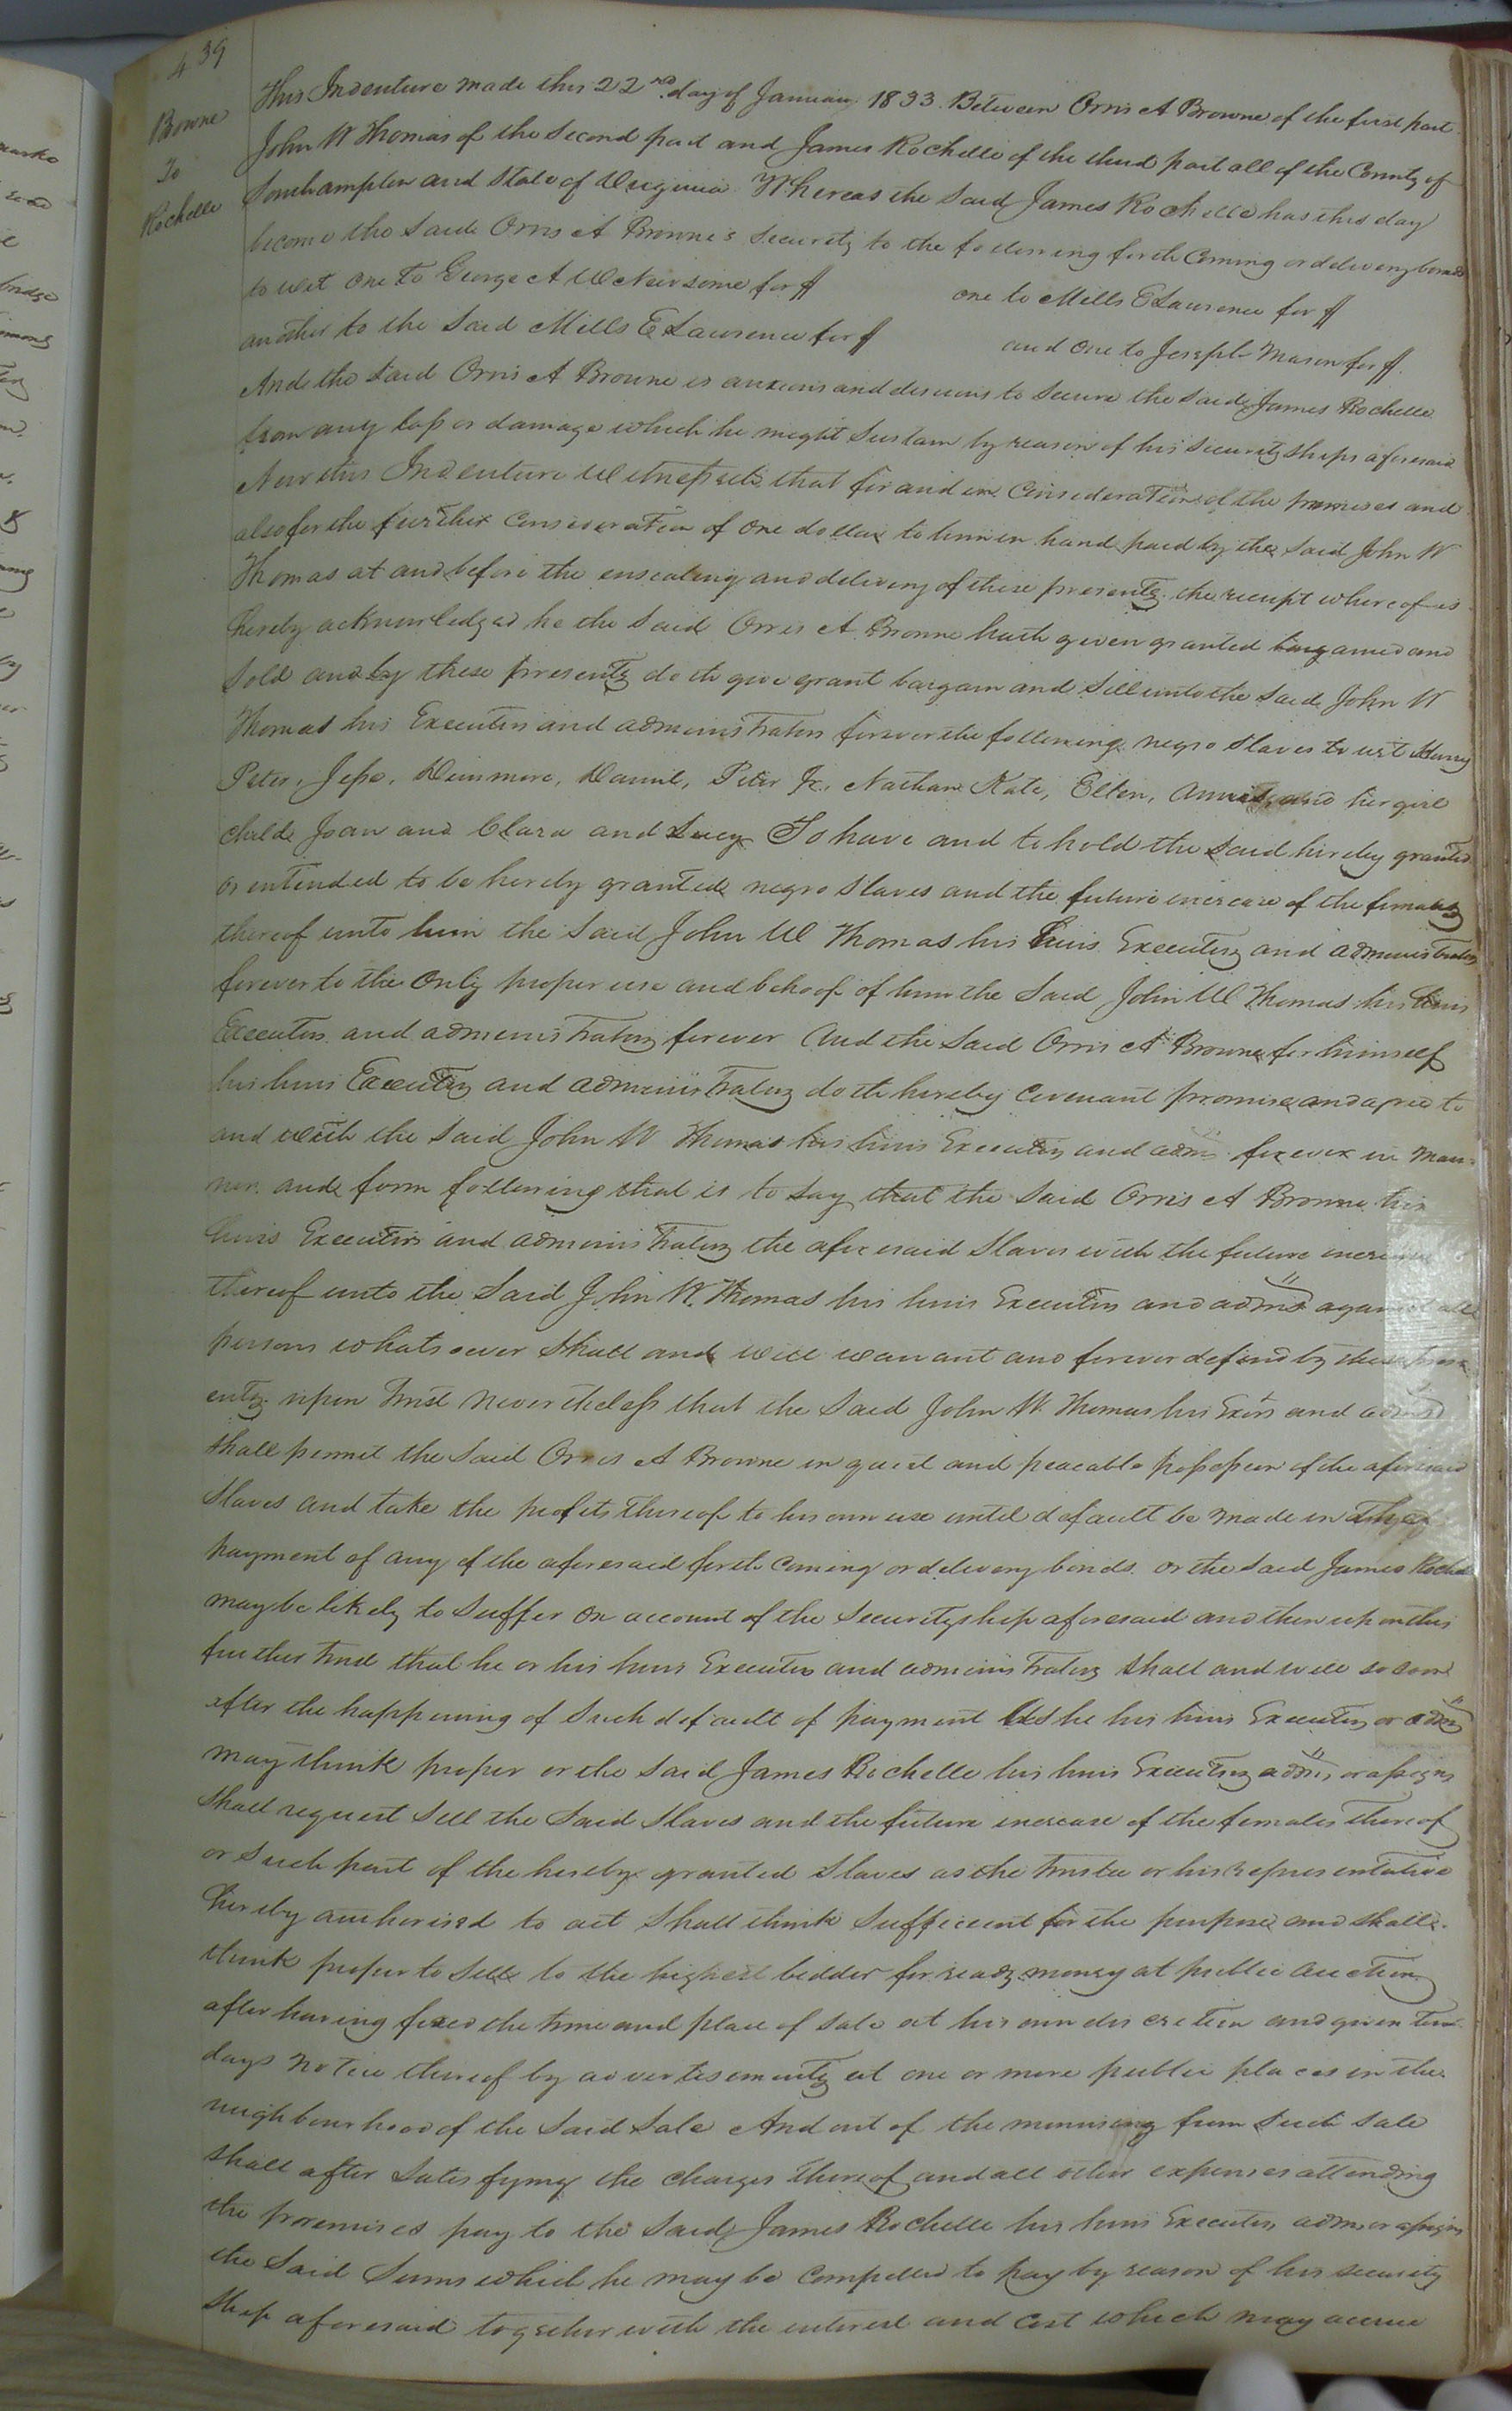 439
Browne
To
Rochelle
This Indenture made this 22nd. day of January 1833. Between Orris A Browne of the first part
John W Thomas of the Second part and James Rochelle of the third part all of the County of
Southampton and State of Virginia Whereas the Said James Rochelle has this day
become the Said Orris A Browne's Security to the following forth Coming or delivery bonds
to wit one to George A W Newsome for $ one to Mills E Lawrence for $
another to the Said Mills E Lawrence for $ and one to Joseph Mason for $.
And the Said Orris A Browne is anxious and desirous to Secure the Said James Rochelle
from any loss or damage which he might Sustain by reason of his Security ships aforesaid
Now this Indenture Witnesseth that for and in Consideration of the premises and
also for the further Consideration of one dollar to him in hand paid by the Said John W
Thomas at and before the ensealing and delivery of these presents the receipt whereof is
hereby acknowledged he the Said Orris A Browne hath given granted bargained and
Sold and by these presents doth give grant bargain and Sell unto the Said John W
Thomas his Executors and administrators forever the following negro Slaves to wit Harry
Peter, Jesse, Dunmore, Daniel, Peter Jr. Nathan Kate, Ellen, and her girl
child Joan and Clara and Lucy To have and to hold the Said hereby granted
or intended to be hereby granted negro Slaves and the future increase of the females
thereof unto him the Said John W Thomas his heirs Executors and administrators
forever to the only proper use and behoof of him the Said John W Thomas his heirs
Executors and administrators forever And the Said Orris A Browne for himself
his heirs Executors and administrators doth hereby Covenant promise and agree to
and with the Said John W Thomas his heirs Executors and adms forever in Man=
ner and form following that is to Say that the Said Orris A Browne his
heirs Executors and administrators the aforesaid Slaves with the future increase
thereof unto the Said John W. Thomas his heirs Executors and adms against all
persons whatsoever Shall and will warrant and forever defend by these pres=
ents upon trust nevertheless that the Said John W. Thomas his Exors and adms
Shall permit the Said Orris A Browne in quiet and peacable possession of the aforesaid
Slaves and take the profits thereof to his own use until default be made in the
payment of any of the aforesaid forth Coming or delivery bonds. or the Said James Rochelle
may be likely to Suffer on account of the Securityship aforesaid and then upon this
further trust that he or his heirs Executors and administrators Shall and will so soon
after the happening of Such default of payment as he his heirs Executors or adms
may think proper or the Said James Rochelle his heirs Executors adms, or assigns
Shall request Sell the Said Slaves and the future increase of the females thereof
or Such part of the hereby granted Slaves as the trustee or his representative
hereby authorised to act Shall think Sufficient for the purpose and Shall
think proper to Sell to the highest bidder for ready money at public auction
after having fixed the time and place of Sale at his own discretion and given ten
days notice thereof by advertisements at one or more public places in the
neighbourhood of the Said Sale And out of the from Such Sale
Shall after Satisfying the charges thereof and all other expenses attending
the premises pay to the Said James Rochelle his heirs Executors adms or assigns
the Said Sums which he may be Compelled to pay by reason of his Security
Ship aforesaid together with the interest and Cost which may accrue